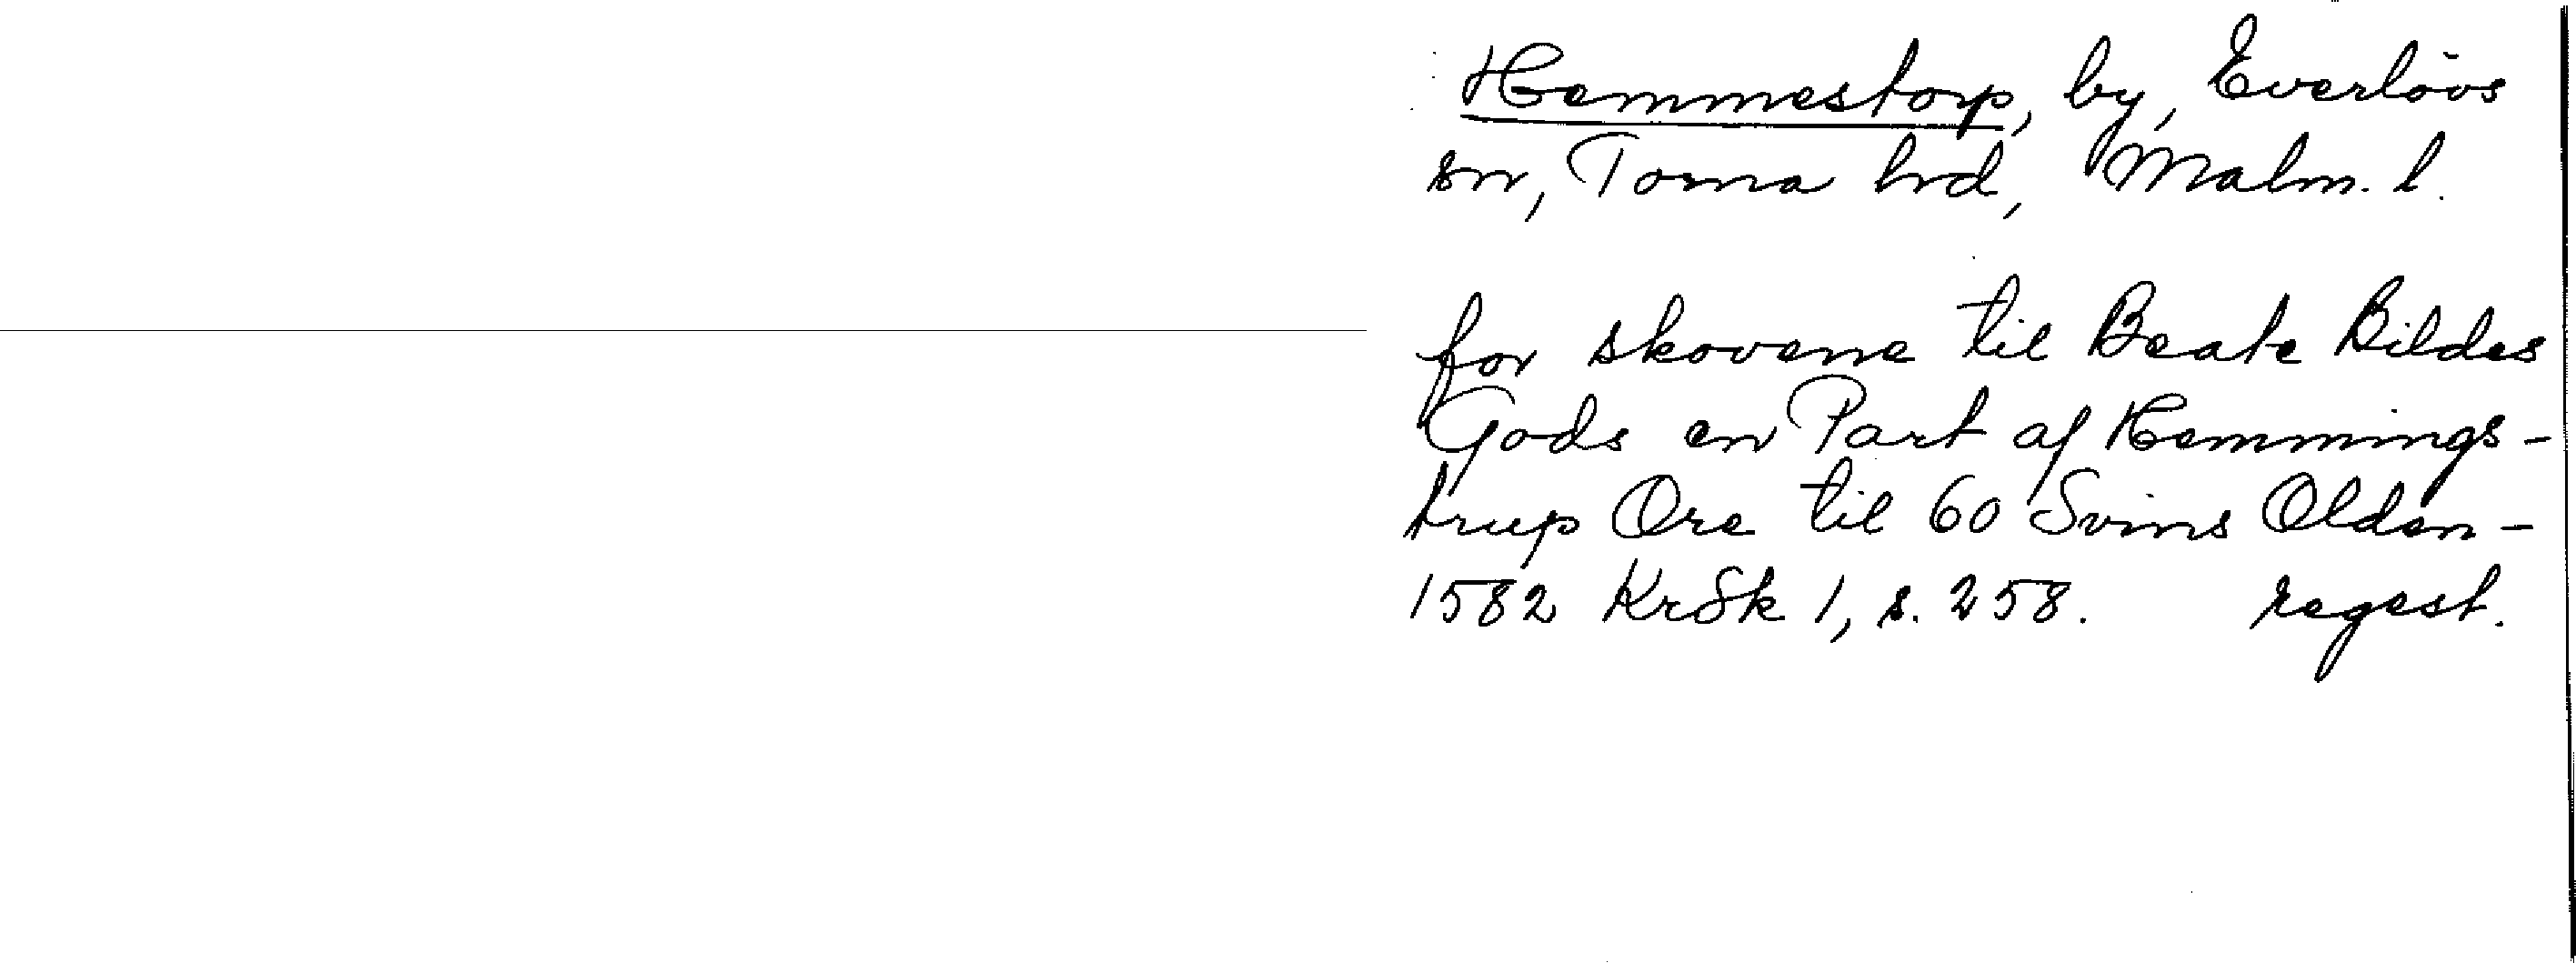 Hemmestorp, by, Everlövs
sn, Torna hd, Malm. l.
for skovene til Beate Bildes
Gods en Part af Hemmings-
trup Ore til 60 Svins Olden-
1582 KrSk 1, s. 258. regest.